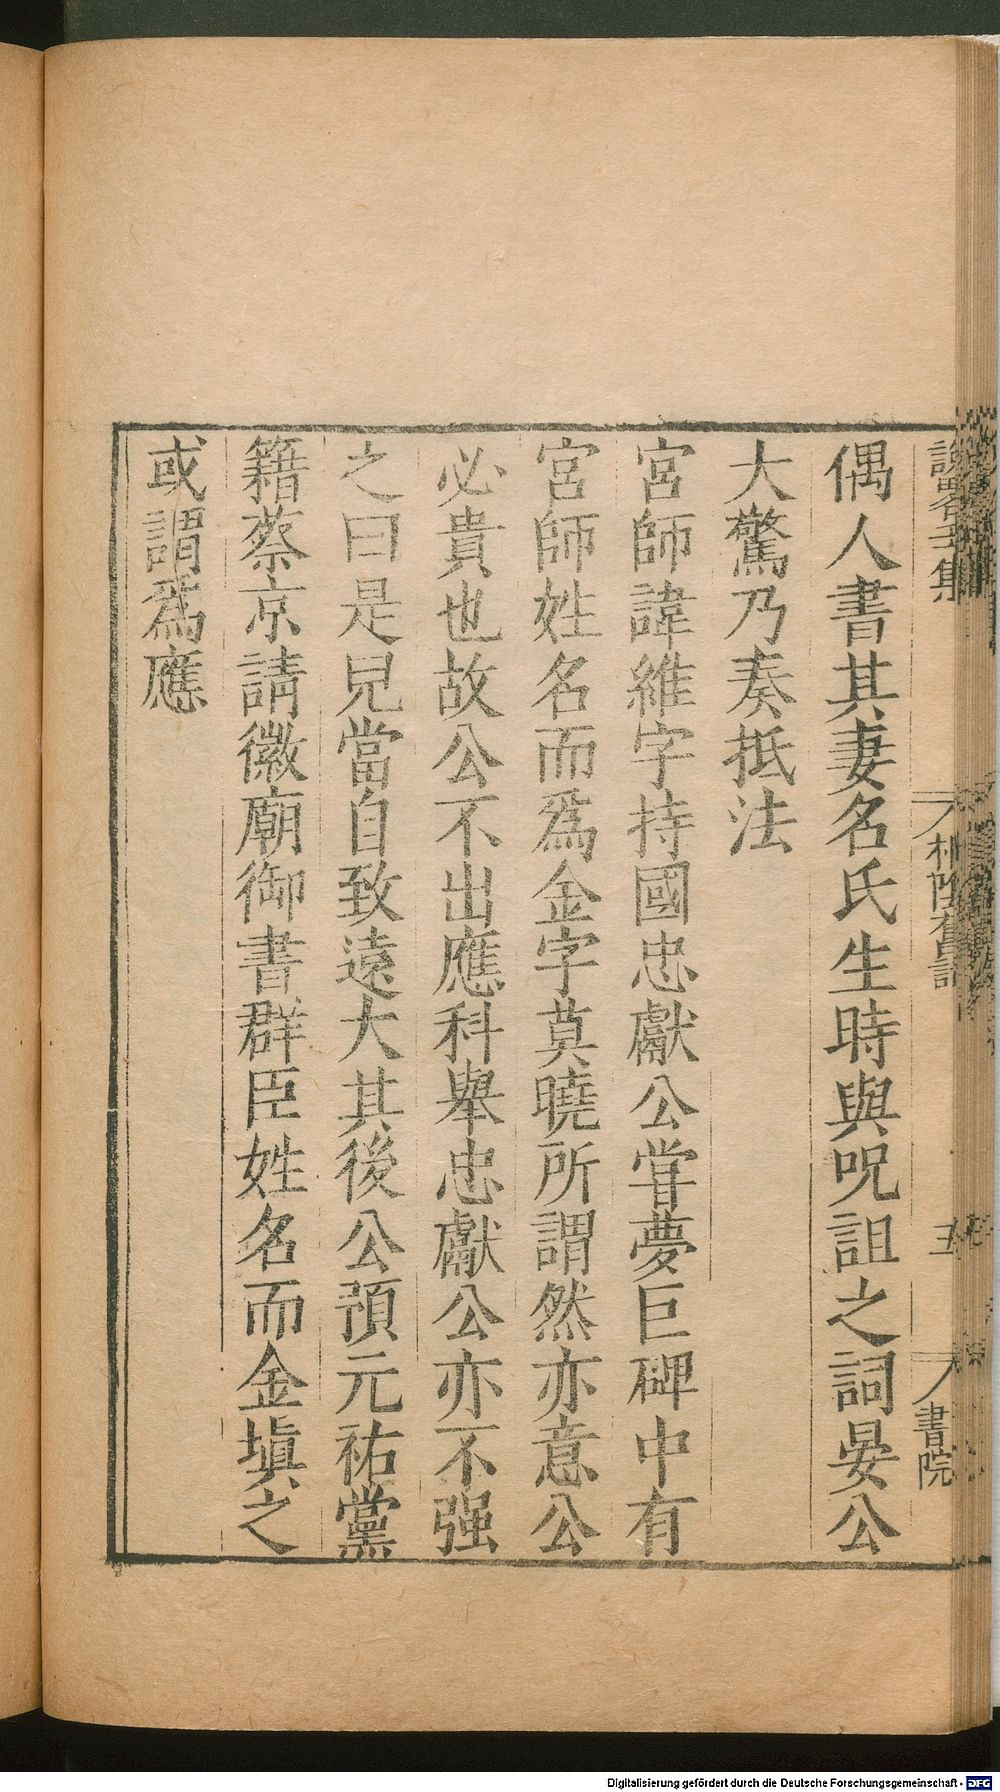 偶人書其妻名氏生時與呪詛之詞晏公
大驚乃奏抵法
宮師諱維字持國忠獻公甞夢巨碑中有
宮師姓名而爲金字莫曉所謂然亦意公
必貴也故公不出應科舉忠獻公亦不强
之曰是兒當自致遠大其後公預元祐黨
籍蔡京請徽廟御書群臣姓名而金塡之
或謂爲應
書院
Digitalisierung gefördert durch die Deutsche Forschungsgemeinschaft - DFG